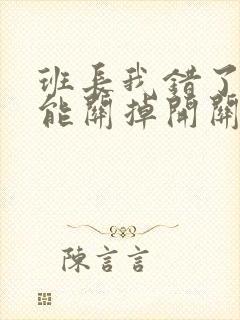 班長我錯了
能關掉開關
陳言言